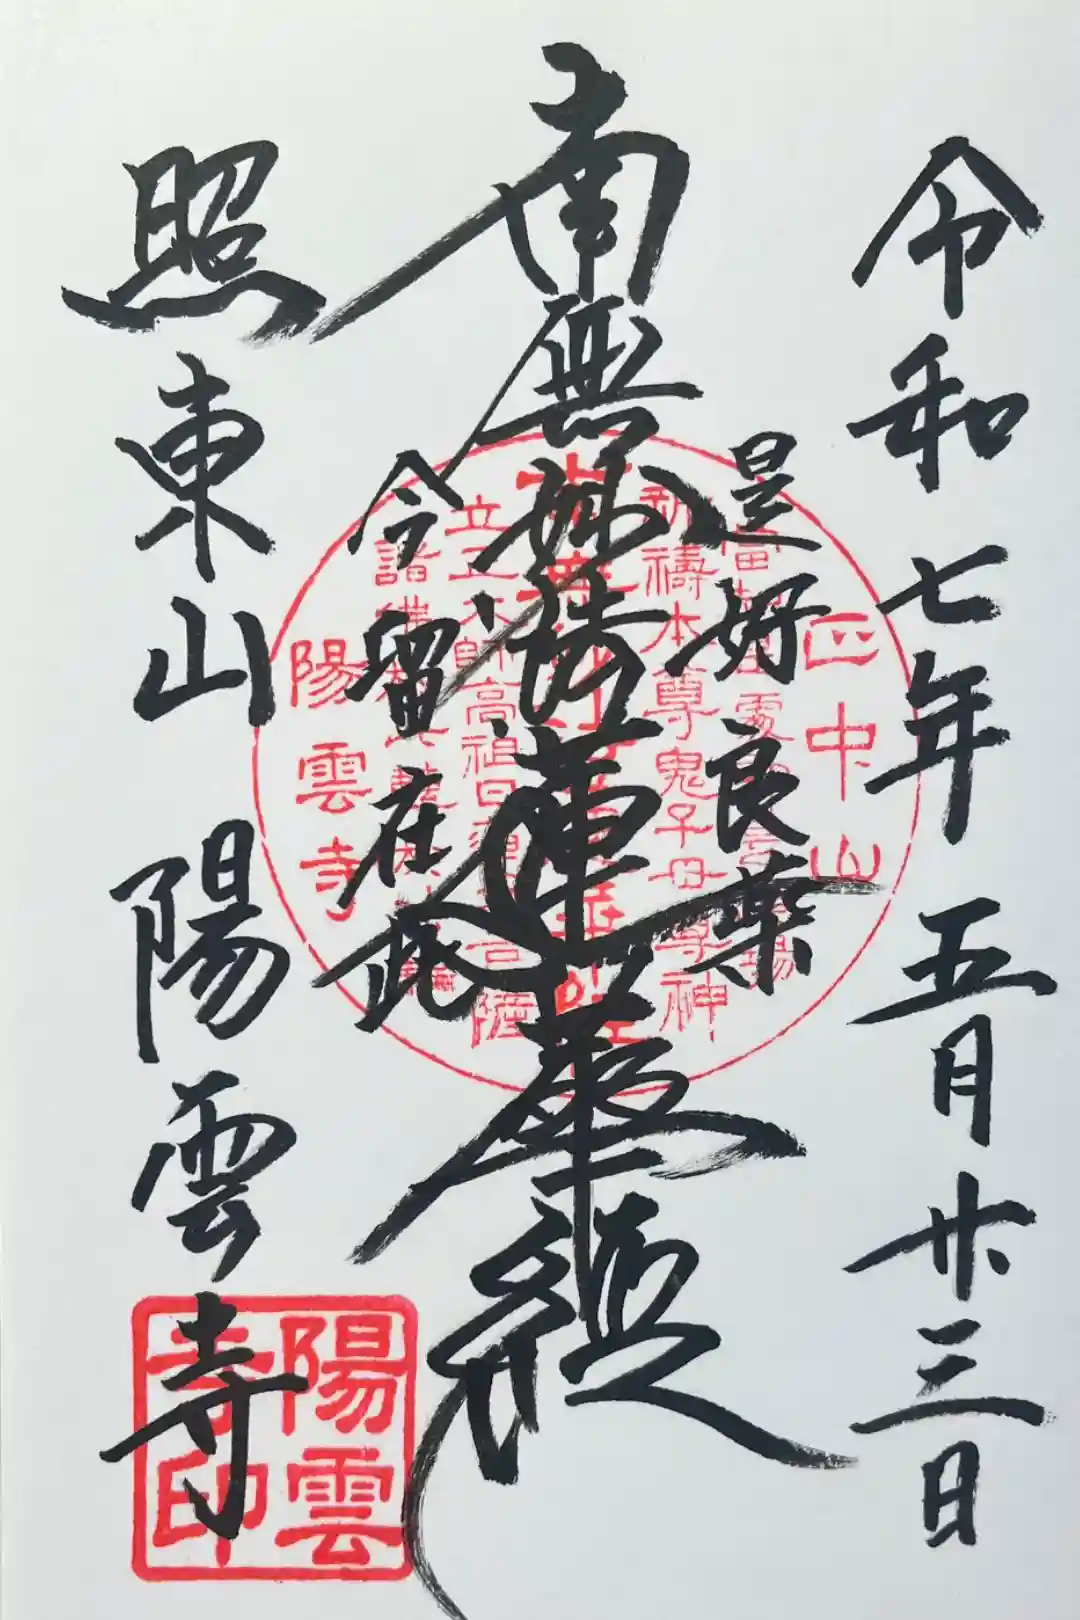 令和七年五月廿三日
是好良薬
南無妙法蓮華経
今留在此
照東山
陽雲寺
正中山
祈祷本尊鬼子母尊神
立正大師高祖日蓮
陽雲寺
陽雲
寺印